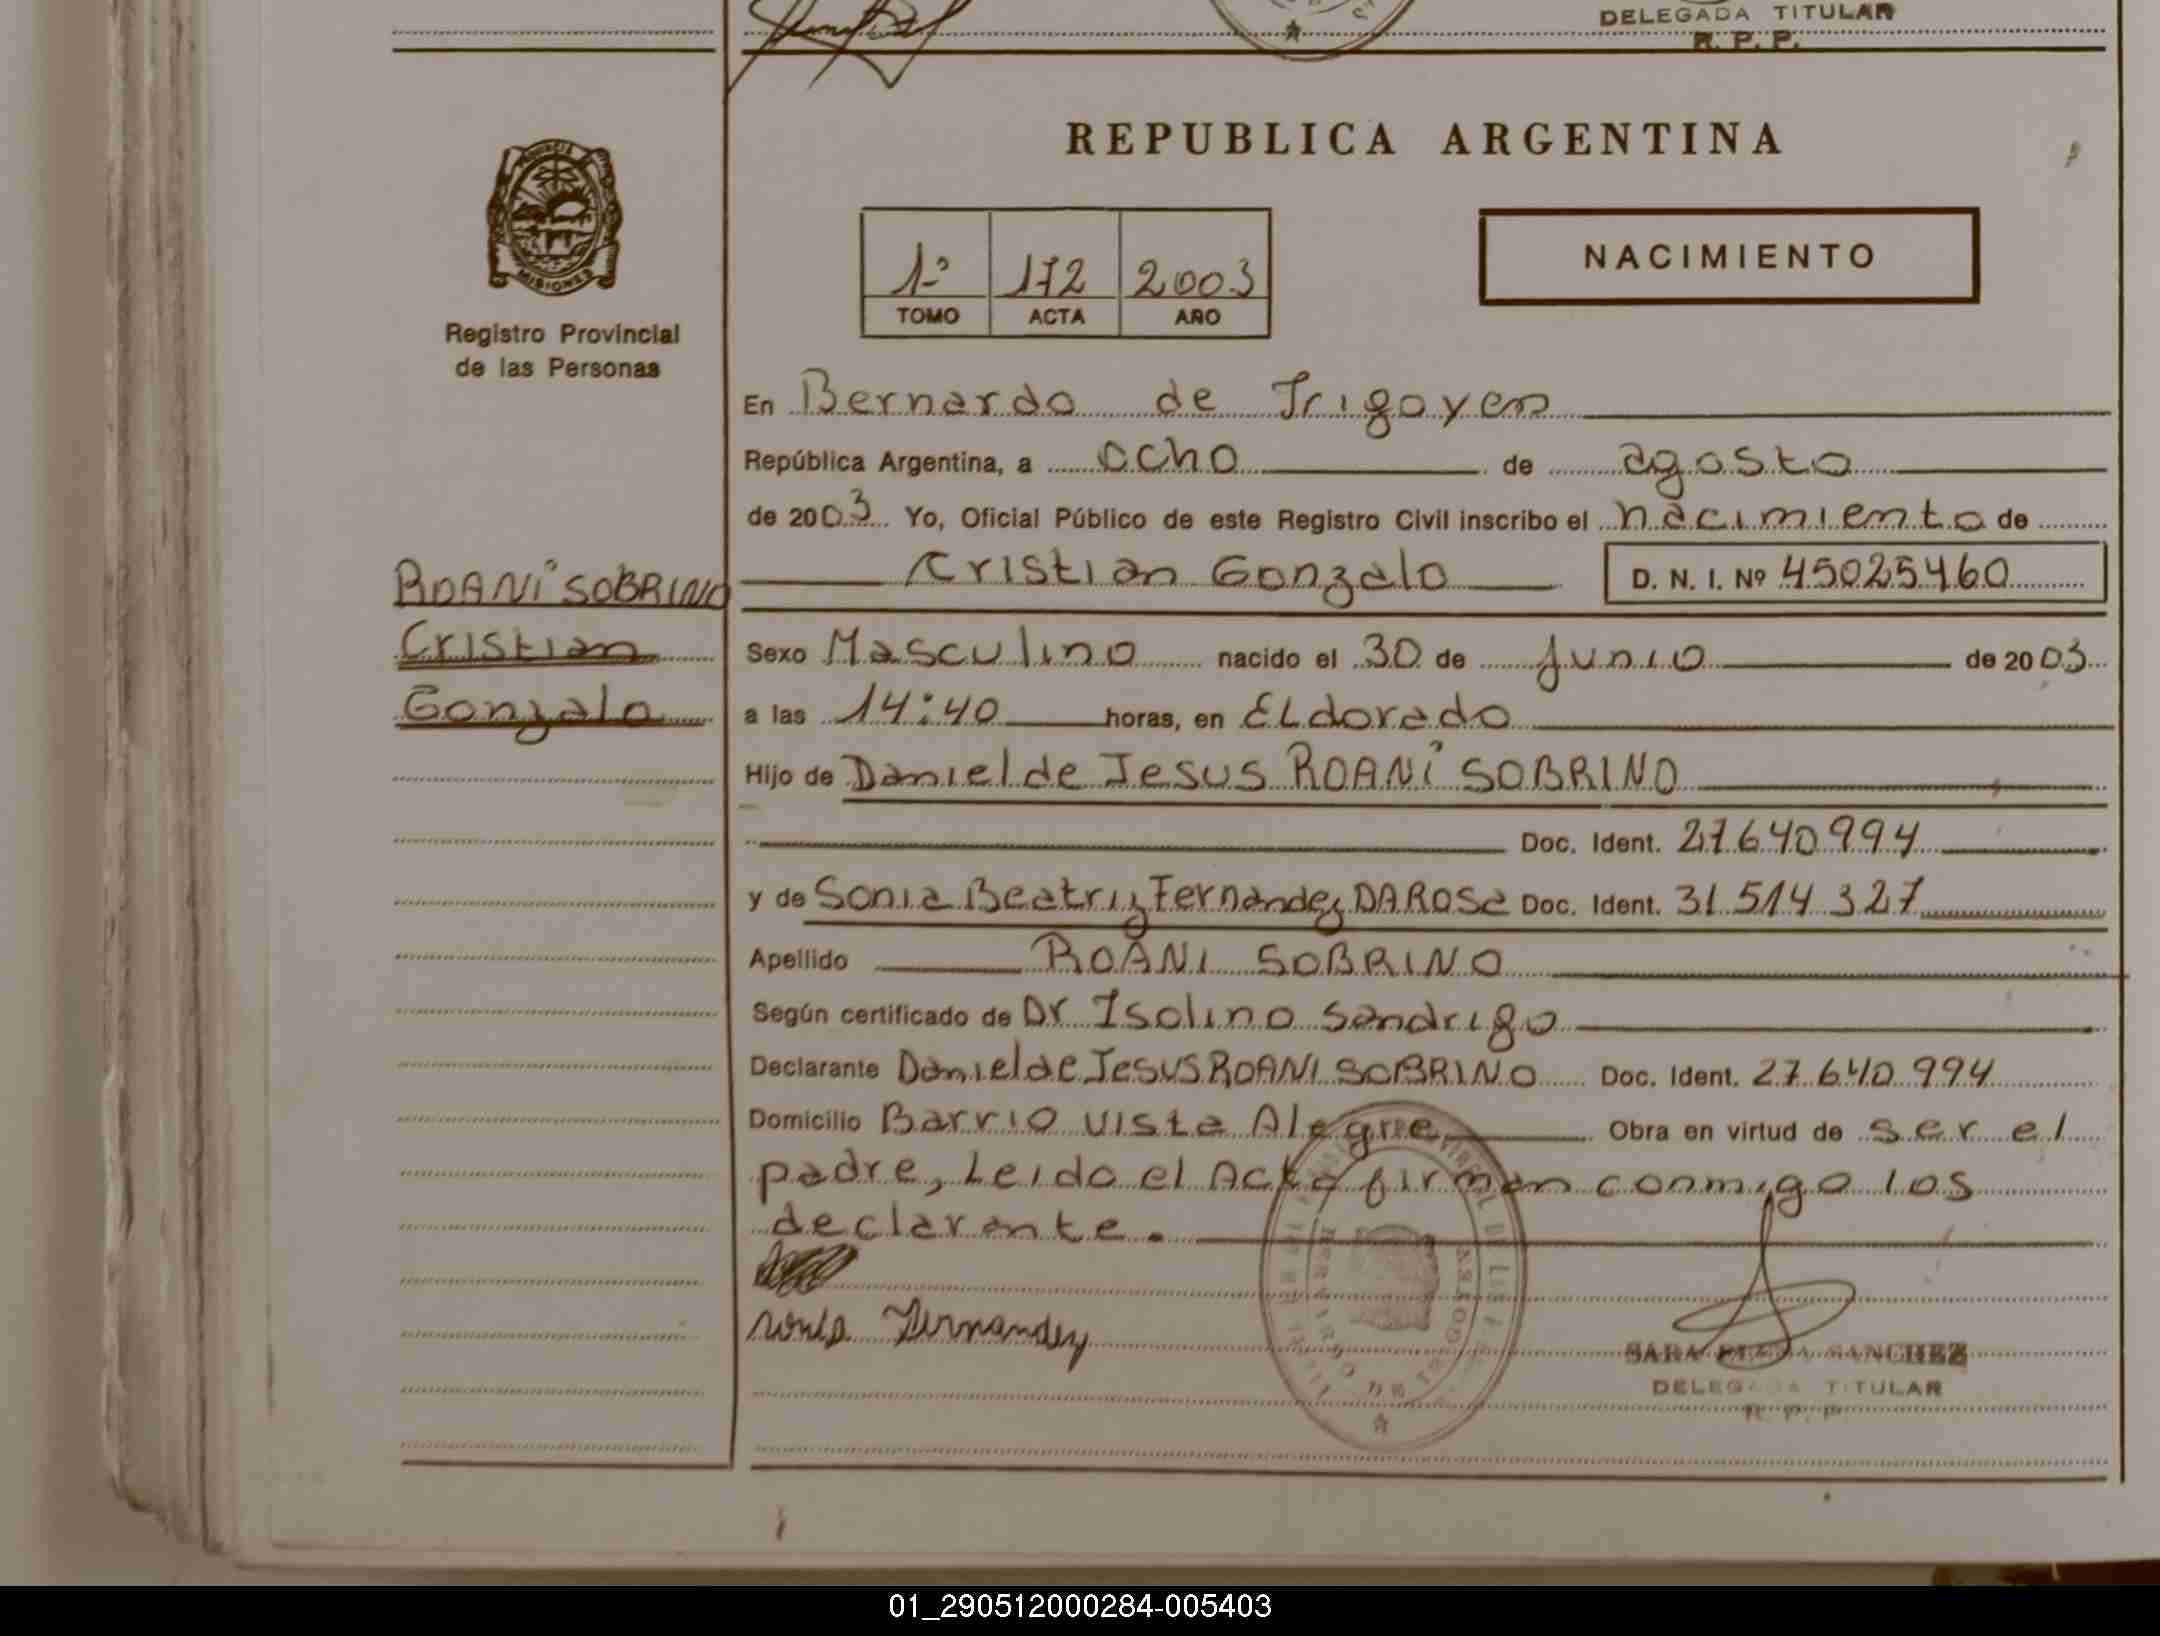 DELEGADA TITULAR
R. P. P.
REPUBLICA ARGENTINA
PROVINCIA
MISIONES
Registro Provincial
de las Personas
1º 172 2003
TOMO ACTA AÑO
NACIMIENTO
En Bernardo de Irigoyen
República Argentina, a ocho de agosto
de 2003 Yo, Oficial Público de este Registro Civil inscribo el nacimiento de
Cristian Gonzalo D. N. I. Nº 45025460
ROANI SOBRINO
Cristian
Gonzalo
Sexo Masculino nacido el 30 de junio de 2003
a las 14:40 horas, en ELdorado
Hijo de Daniel de Jesus ROANI SOBRINO
Doc. Ident. 27640994
y de Sonia Beatriz Fernandez DA ROSa Doc. Ident. 31514327
Apellido ROANI SOBRINO
Según certificado de Dr Isolino Sandrigo
Declarante Daniel de Jesus ROANI SOBRINO Doc. Ident. 27640994
Domicilio Barrio Vista Alegre Obra en virtud de ser el
padre, Leido el Acta firman conmigo los
declarante.
Sonia Fernandez
SARA SANCHEZ
DELEGADA TITULAR
R. P. P.
01_290512000284-005403